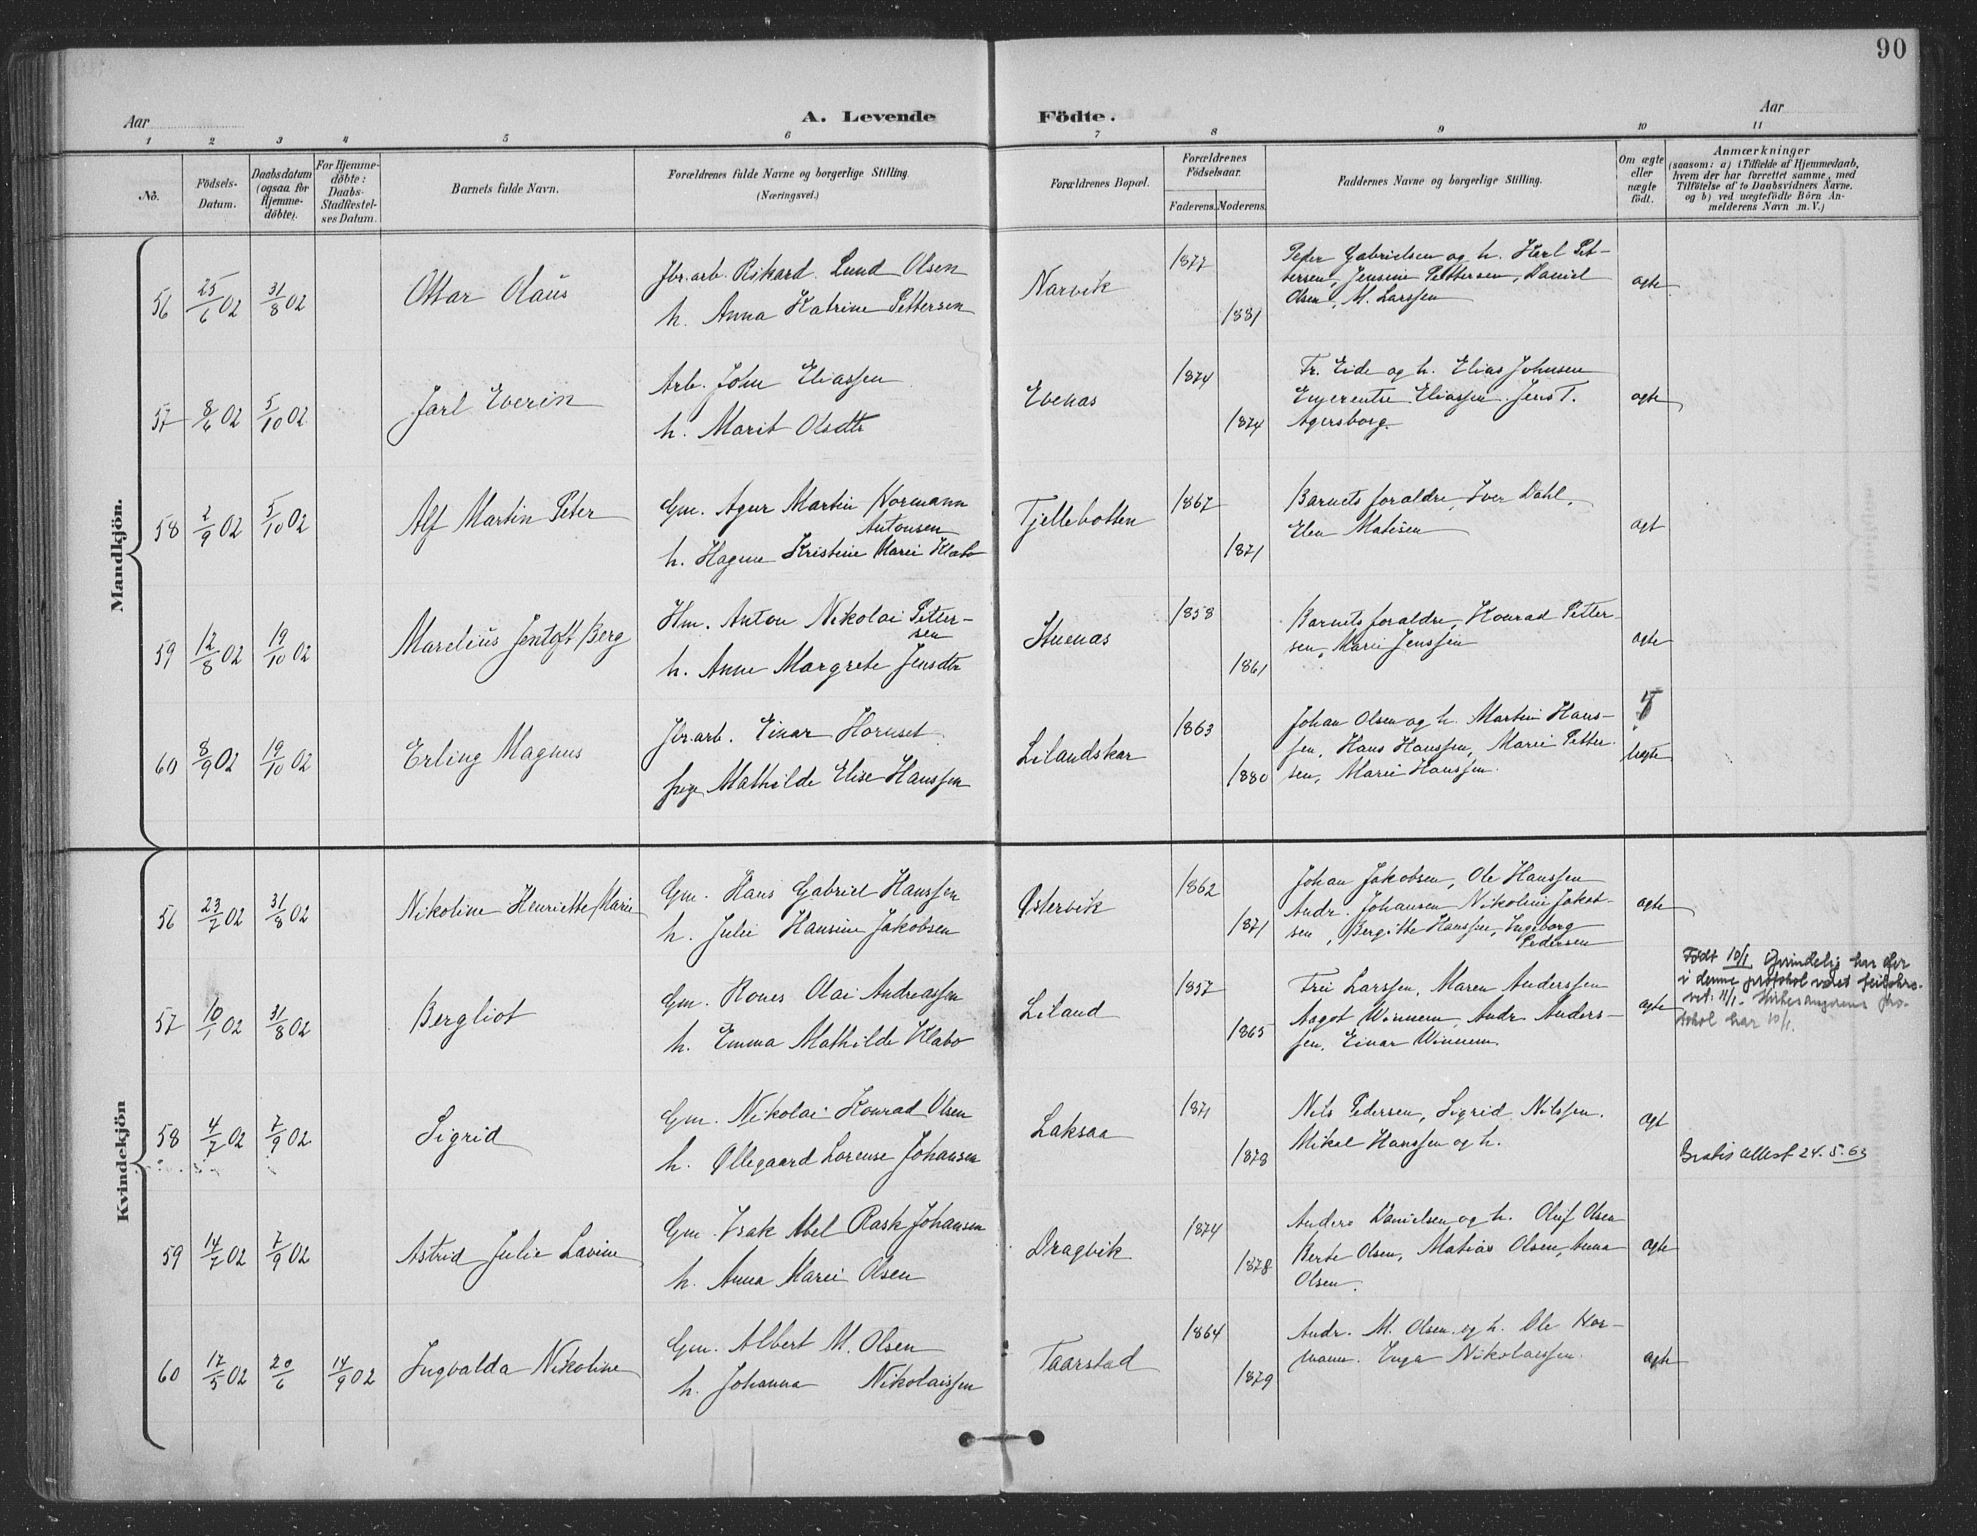 90
Aar
A. Levende
Födte.
Aar
1 2 3 4 5 6 7 8 9 10 11
No.
Födsels-
Datum.
Daabsdatum
(ogsaa for
Hjemme-
döbte).
For Hjemme-
döbte:
Daabs-
Stadfæstel-
ses Datum.
Barnets fulde Navn.
Forældrenes fulde Navne og borgerlige Stilling.
(Næringsvei.)
Forældrenes Bopæl.
Forældrenes
Födselsaar.
Faderens. Moderens.
Faddernes Navne og borgerlige Stilling.
Om ægte
eller
uægte
födt.
Anmærkninger
(saasom: a) i Tilfælde af Hjemmedaab,
hvem der har forrettet samme, med
Tilföielse af to Daabsvidners Navne.
og b) ved uægtefödte Börn An-
melderens Navn m. V.)
Mandkjön.
56 25/6 02 31/8 02 Ottar Olaus
Jbr.arb. Rikard Lund Olsen
h. Anna Katrine Pettersen
Narvik 1877 1881
Peter Gabrielsen og h. Karl Pet-
tersen, Jensine Pettersen, Daniel
Olsen, M. Larssen
ægte
57 8/6 02 5/10 02 Jarl Everin
Arb. John Eliassen
h. Marit Olsdtr
Evenæs 1874 1874
Fr. Eide og h. Elias Johnsen
Eliassen. Jens T.
Agersborg.
ægte
58 2/9 02 5/10 02 Alf Martin Peter
Gm. Agur Martin Normann
Antonsen
h. Hagne Kristine Marie Klæbo
Tjellebotten 1867 1871
Barnets forældre, Iver Dahl,
Elen Matisen
ægt
59 12/8 02 19/10 02 Marelius Jentoft Berg
Hm. Anton Nikolai Petter-
sen
h. Anne Margrete Jensdtr
1858 1861
Barnets forældre, Konrad Petter-
sen, Marie Jenssen
ægte
60 8/9 02 19/10 02 Erling Magnus
Jbr.arb. Einar Hornset
pige Mathilde Elise Hanssen
Lilandskar 1863 1880
Johan Olsen og h. Martin Hans-
sen, Hans Hanssen, Marie Petter-
sen, Marie Hanssen.
uegte
Kvindekjön
56 23/7 02 31/8 02 Nikoline Henriette Marie
Gm. Hans Gabriel Hanssen
h. Julie Hansine Jakobsen
Østervik 1862 1871
Johan Jakobsen, Ole Hanssen
Andr. Johansen Nikoline Jakob-
sen, Bergitte Hanssen, Ingeborg
Pedersen
ægte
57 10/1 02 31/8 02 Bergliot
Gm. Rones Olai Andreassen
h. Emma Mathilde Klæbo
Liland 1857 1865
Frii Larssen, Maren Anderssen
Aagot Winnem, Andr. Anders-
sen, Einar Winnem.
ægte
Født 10/1. Oprindelig har der
i denne protokol været feilskre-
vet: 11/1. pro-
tokol har 10/1.
58 4/7 02 7/9 02 Sigrid
Gm. Nikolai Konrad Olsen
h. Øllegaard Lorense Johansen
Laksaa 1871 1878
Nils Pedersen, Sigrid Nilssen.
Mikal Hanssen og h.
ægt
Gratis attest 24.5.63
59 14/7 02 7/9 02 Astrid Julie Lavine
Gm. Isak Abel Rask Johansen
h. Anna Marie Olsen
Dragvik 1874 1878
Anders Danielsen og h. Oluf Olsen
Berte Olsen, Matias Olsen, Anna
Olsen.
ægte
60 17/5 02 20/6 14/9 02 Ingvalda Nikoline
Gm. Albert M. Olsen
h. Johanna Nikolaissen
Taarstad 1864 1879
Andr. M. Olsen og h. Ole Nor-
mann. Enga Nikolaissen.
ægte